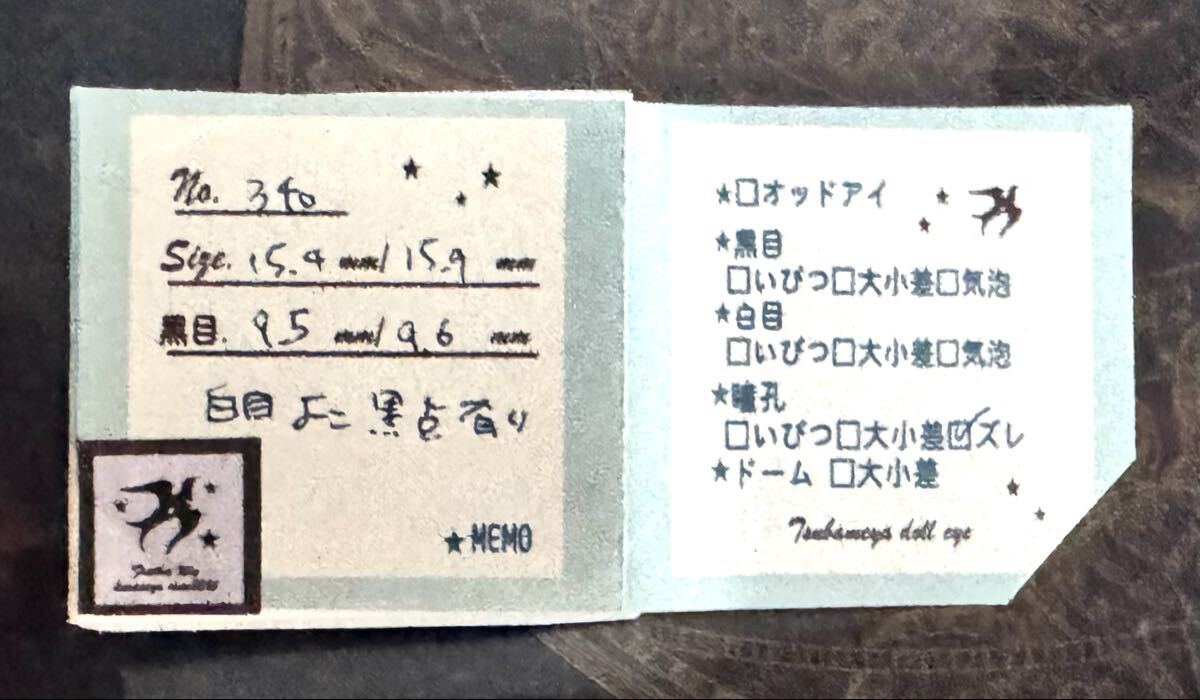 No. 340
Size. 15.4 mm/ 15.9 mm
黒目. 9.5 mm/ 9.6 mm
白目 よこ 黒点有り
★MEMO
★□オッドアイ
★黒目
□いびつ□大小差□気泡
★白目
□いびつ□大小差□気泡
★瞳孔
□いびつ□大小差☑ズレ
★ドーム □大小差
Tsubameya doll eye